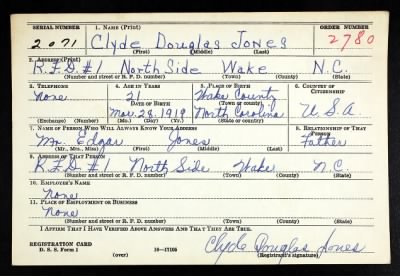 SERIAL NUMBER 1. NAME (Print) ORDER NUMBER
2071 Clyde Douglas Jones 2780
(First) (Middle) (Last)
2. ADDRESS (Print)
R.F.D.#1 North Side Wake N.C.
(Number and street or R. F. D. number) (Town) (County) (State)
3. TELEPHONE 4. AGE IN YEARS 5. PLACE OF BIRTH 6. COUNTRY OF CITIZENSHIP
None 21 Wake County
DATE OF BIRTH (Town or county)
Mar. 28. 1919 North Carolina U.S.A.
(Exchange) (Number) (Mo.) (Day) (Yr.) (State or country)
7. NAME OF PERSON WHO WILL ALWAYS KNOW YOUR ADDRESS 8. RELATIONSHIP OF THAT PERSON
Mr. Edgar Jones Father
(Mr., Mrs., Miss) (First) (Middle) (Last)
9. ADDRESS OF THAT PERSON
R.F.D.#1 North Side Wake N.C.
(Number and street or R. F. D. number) (Town) (County) (State)
10. EMPLOYER'S NAME
None
11. PLACE OF EMPLOYMENT OR BUSINESS
None
(Number and street or R. F. D. number) (Town) (County) (State)
I AFFIRM THAT I HAVE VERIFIED ABOVE ANSWERS AND THAT THEY ARE TRUE.
REGISTRATION CARD
D. S. S. Form 1 16-17105 Clyde Douglas Jones
(over) (Registrant's signature)